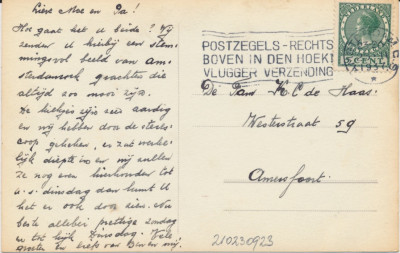 Lieve Moe en Pa!
Hoe gaat het u beide? Wij
zenden u hierbij een stem-
mingsvol beeld van Am-
sterdamsch grachtje die
altijd zoo mooi zijn.
De kiekjes zijn zeer aardig
en wij hebben door de stereo-
coop gekeken, er zat werke-
lijk diepte in en wij zullen
ze nog even hierhouden tot
a.s. dinsdag dan kunt U
het er ook door zien. Nu
beste allebei prettige zondag
en tot kijk Dinsdag. Vele
groeten en kusjes van Ben en mij.
POSTZEGELS-RECHTS
BOVEN IN DEN HOEK!
VLUGGER VERZENDING
De Fam. H C de Haas.
Westerstraat 59
Amersfoort.
210230923